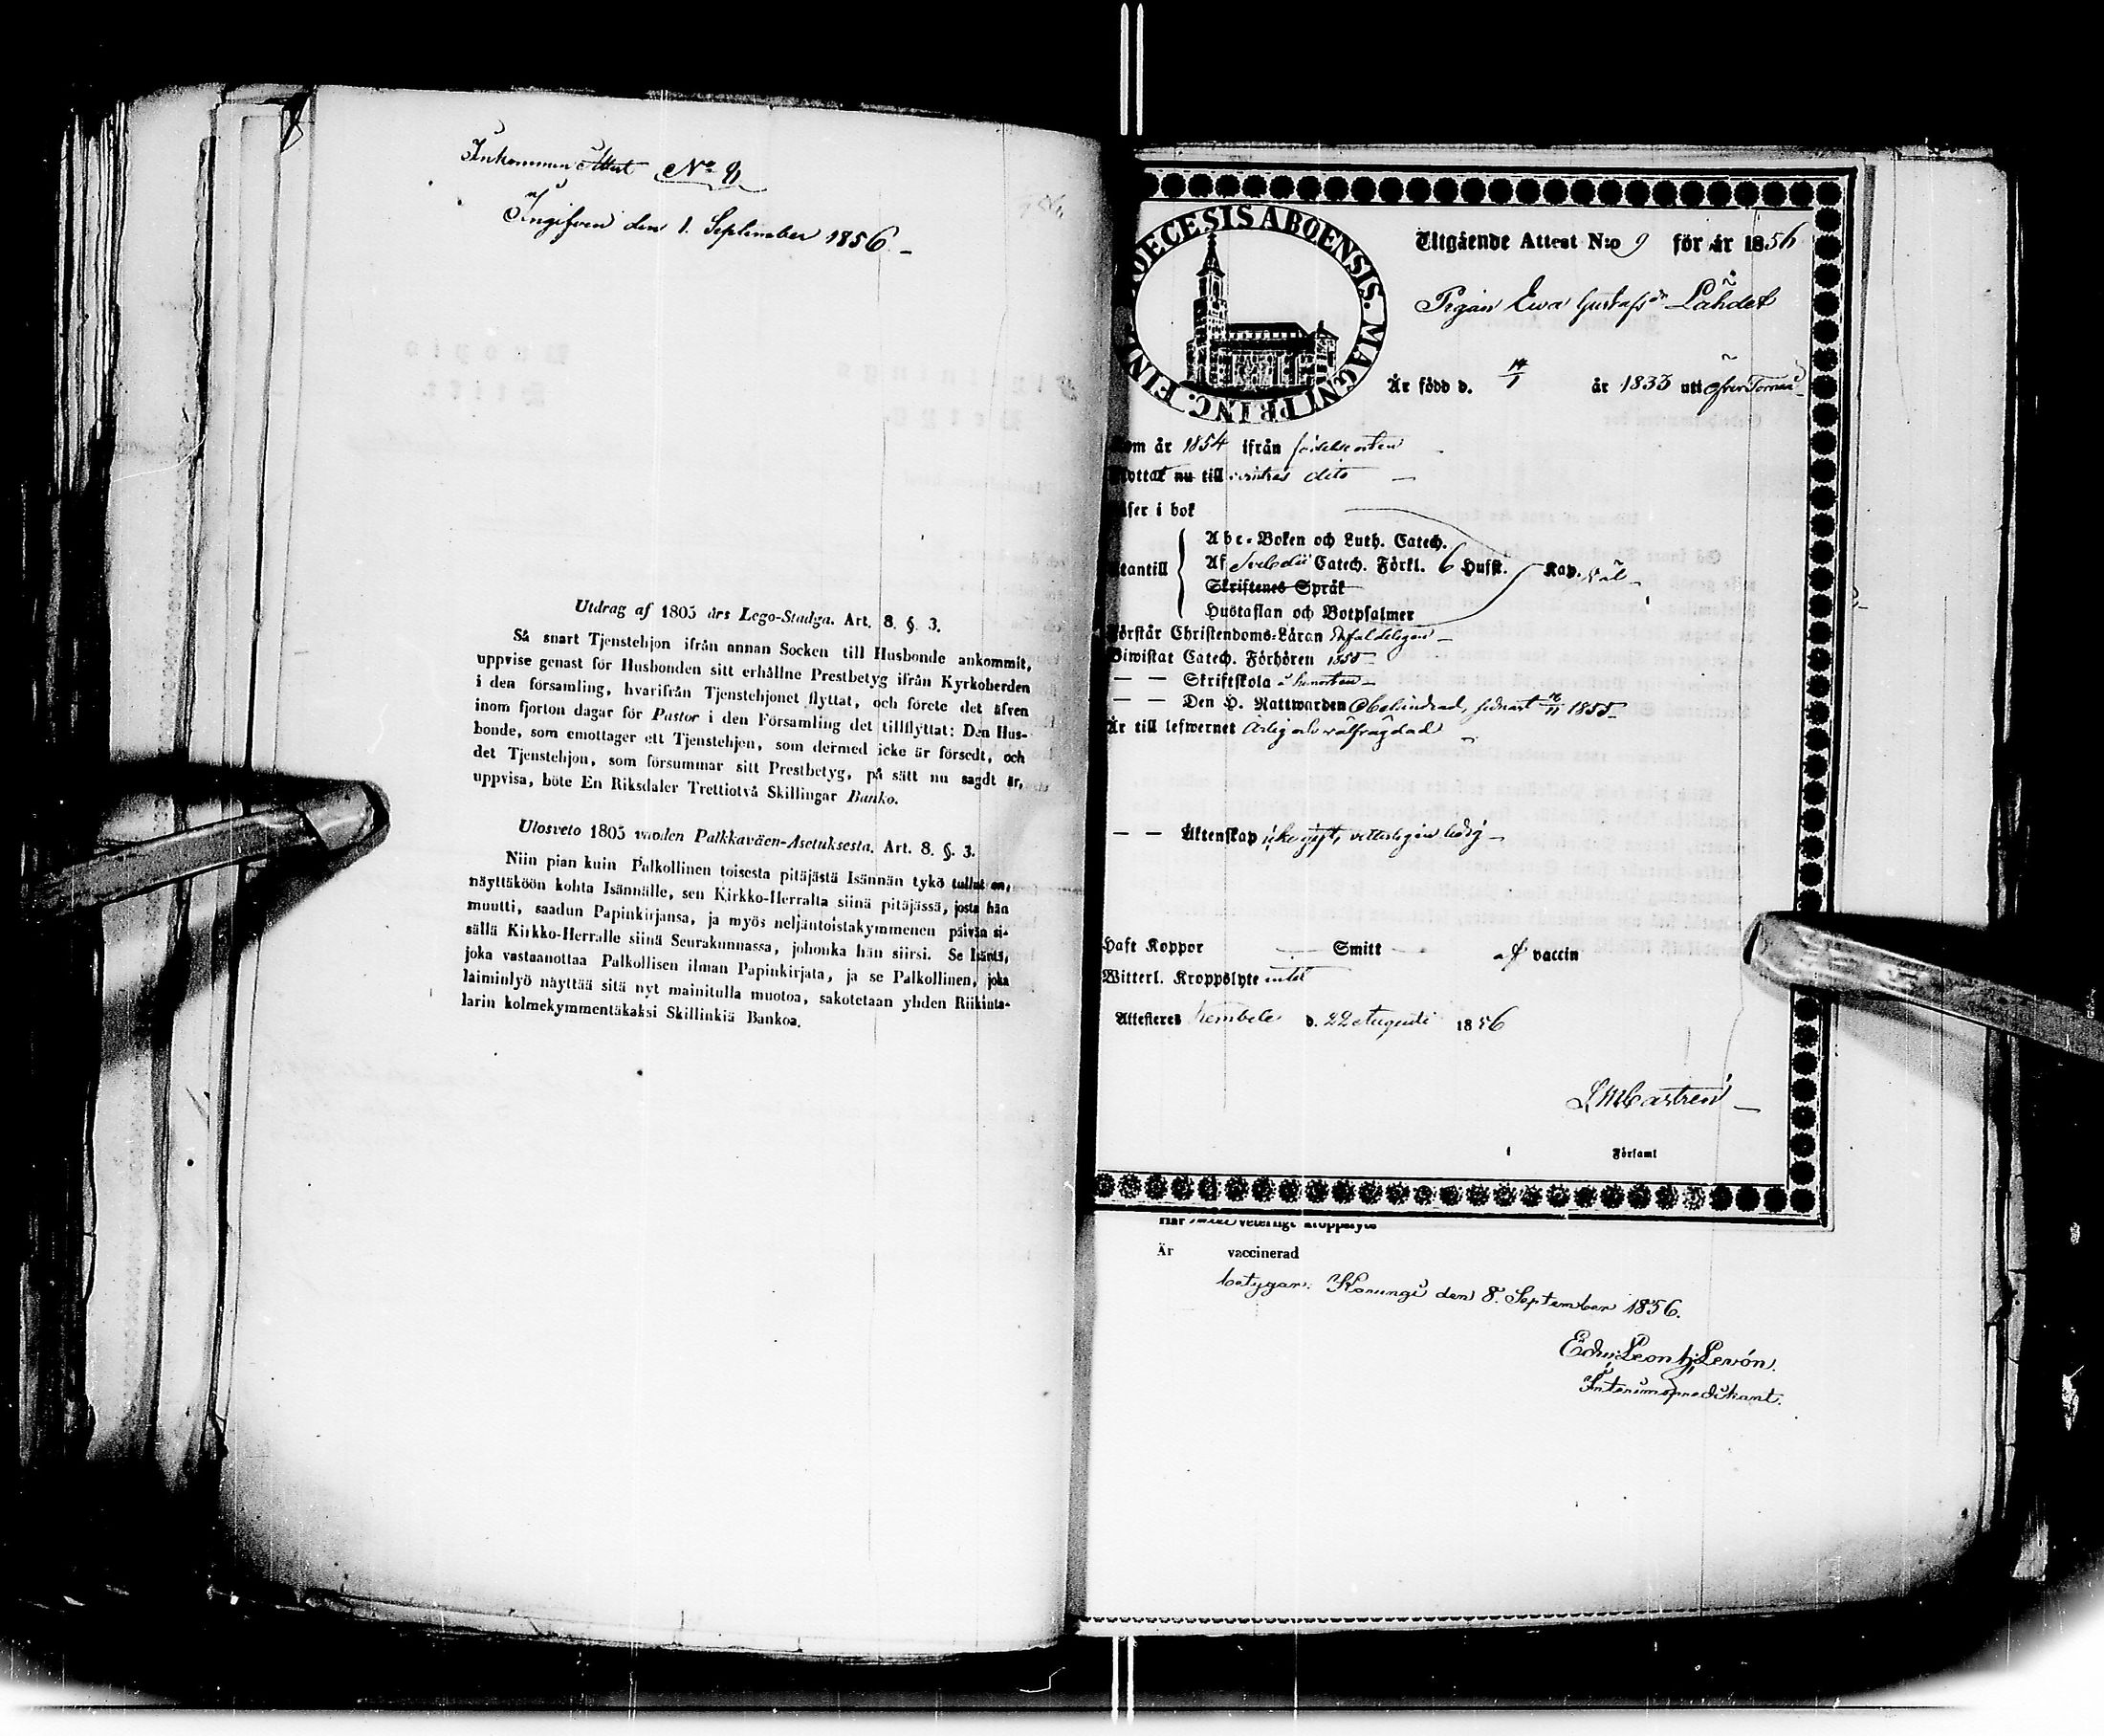 Inkommen Attest No 9
Ingifven den 1. September 1856.
Utdrag af 1805 års Lego-Stadga. Art. 8. §. 3.
Så snart Tjenstehjon ifrån annan Socken till Husbonde ankommit,
uppvise genast för Husbonden sitt erhållne Prestbetyg ifrån Kyrkoherden
i den församling, hvarifrån Tjenstehjonet flyttat, och förete det äfven
inom fjorton dagar för Pastor i den Församling det tillflyttat: Den Hus-
bonde, som emottager ett Tjenstehjon, som dermed icke är försedt, och
det Tjenstehjon, som försummar sitt Prestbetyg, på sätt nu sagdt är,
uppvisa, böte En Riksdaler Trettiotvå Skillingar Banko.
Ulosveto 1805 vuoden Palkkaväen-Asetuksesta. Art. 8. §. 3.
Niin pian kuin Palkollinen toisesta pitäjästä Isännän tykö tullut on,
näyttäköön kohta Isännälle, sen Kirkko-Herralta siinä pitäjässä, josta hän
muutti, saadun Papinkirjansa, ja myös neljäntoistakymmenen päivän si-
sällä Kirkko-Herralle siinä Seurakunnassa, johonka hän siirsi. Se Isäntä,
joka vastaanottaa Palkollisen ilman Papinkirjata, ja se Palkollinen, joka
laiminlyö näyttää sitä nyt mainitulla muotoa, sakotetaan yhden Riikinta-
larin kolmekymmentäkaksi Skillinkiä Bankoa.
DECESIS ABOENSIS. MAGNI PRINC. FINL
Utgående Attest N:o 9 för år 1856
Pigan Ewa Gustafsdr Lahdet
Är född d. 14/1 år 1833 uti öfverTorneå
Kom år 1854 ifrån födelseorten
Flyttat nu till dito
Läser i bok
Utantill
Abc-Boken och Luth. Catech.
Af Svebelii Catech. Förkl. 6 Hufst. Kap. väl
Skriftenes Språk
Hustaflan och Botpsalmer
Förstår Christendoms-Läran enfaldeligen
Biwistat Catech. Förhören 1855
— — Skriftskola å hemorten
— — Den H. Nattwarden Oberindrad, sednast 1855
Är till lefwernet ärlig och välfrägdad
— — Äktenskap icke gift, vetterligen ledig
Haft Koppor — Smitt — af vaccin
Witterl. Kroppslyte intet
Attesteres Kembele d. 22 Augusti 1856
L M Castrén
Förlamt
Har intet veterligt kroppslyte
Är vaccinerad
betygar. Karungi den 8. September 1856.
Edv: Leont: Levón.
Interimspredikant.